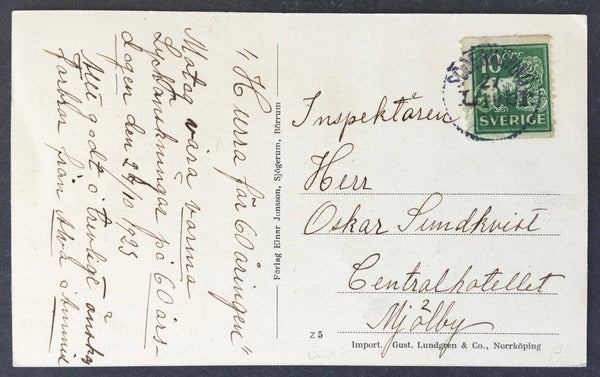 „Hurra för 60 åringen"
Motag våra varma
Lyckönskningar på 60 års-
dagen den 27/10 1925
Allt godt o trevligt önskas
farbror från Alva o
Förlag Einar Jonsson, Sjögerum, Börrum
10 ÖRE
SVERIGE
27
Inspektören
Herr
Oskar Sundkvist
Centralhotellet
Mjölby
Z 5
Import. Gust. Lundgren & Co., Norrköping